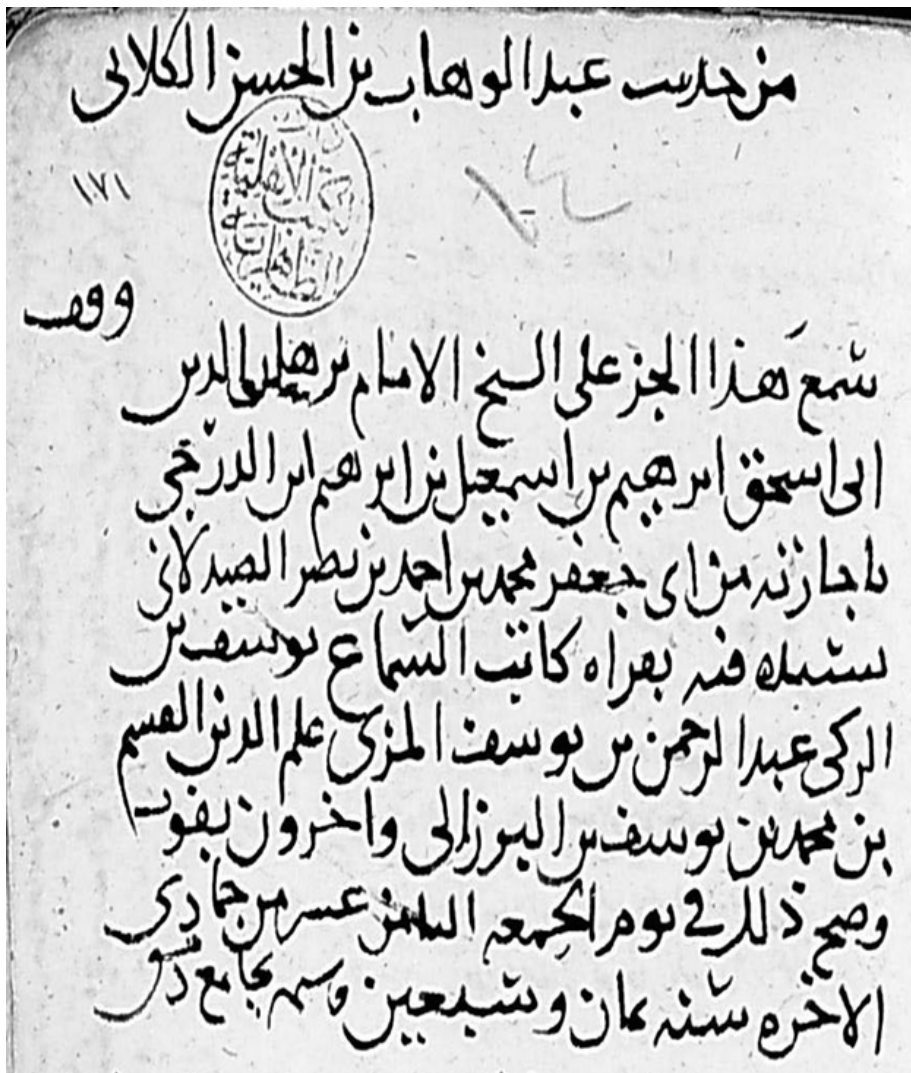 من حديث عبد الوهاب بن الحسن الكلابي
١٧١
١٠٤
دار الكتب الأهلية الظاهرية
وقف
سمع هذا الجز على الشيخ الامام برهان الدين
ابي اسحق ابرهيم بن اسمعيل بن ابرهيم ابن الدرجي
باجازته من ابي جعفر محمد بن احمد بن نصر الصيدلاني
بسنده فيه بقراه كاتب السماع يوسف بن
الزكي عبد الرحمن بن يوسف المزي علم الدين القسم
بن محمد بن يوسف بن البرزالي واخرون بفوت
وصح ذلك في يوم الجمعه الثامن عشر من جمادى
الاخره سنه ثمان وسبعين وستمه بجامع دمشق